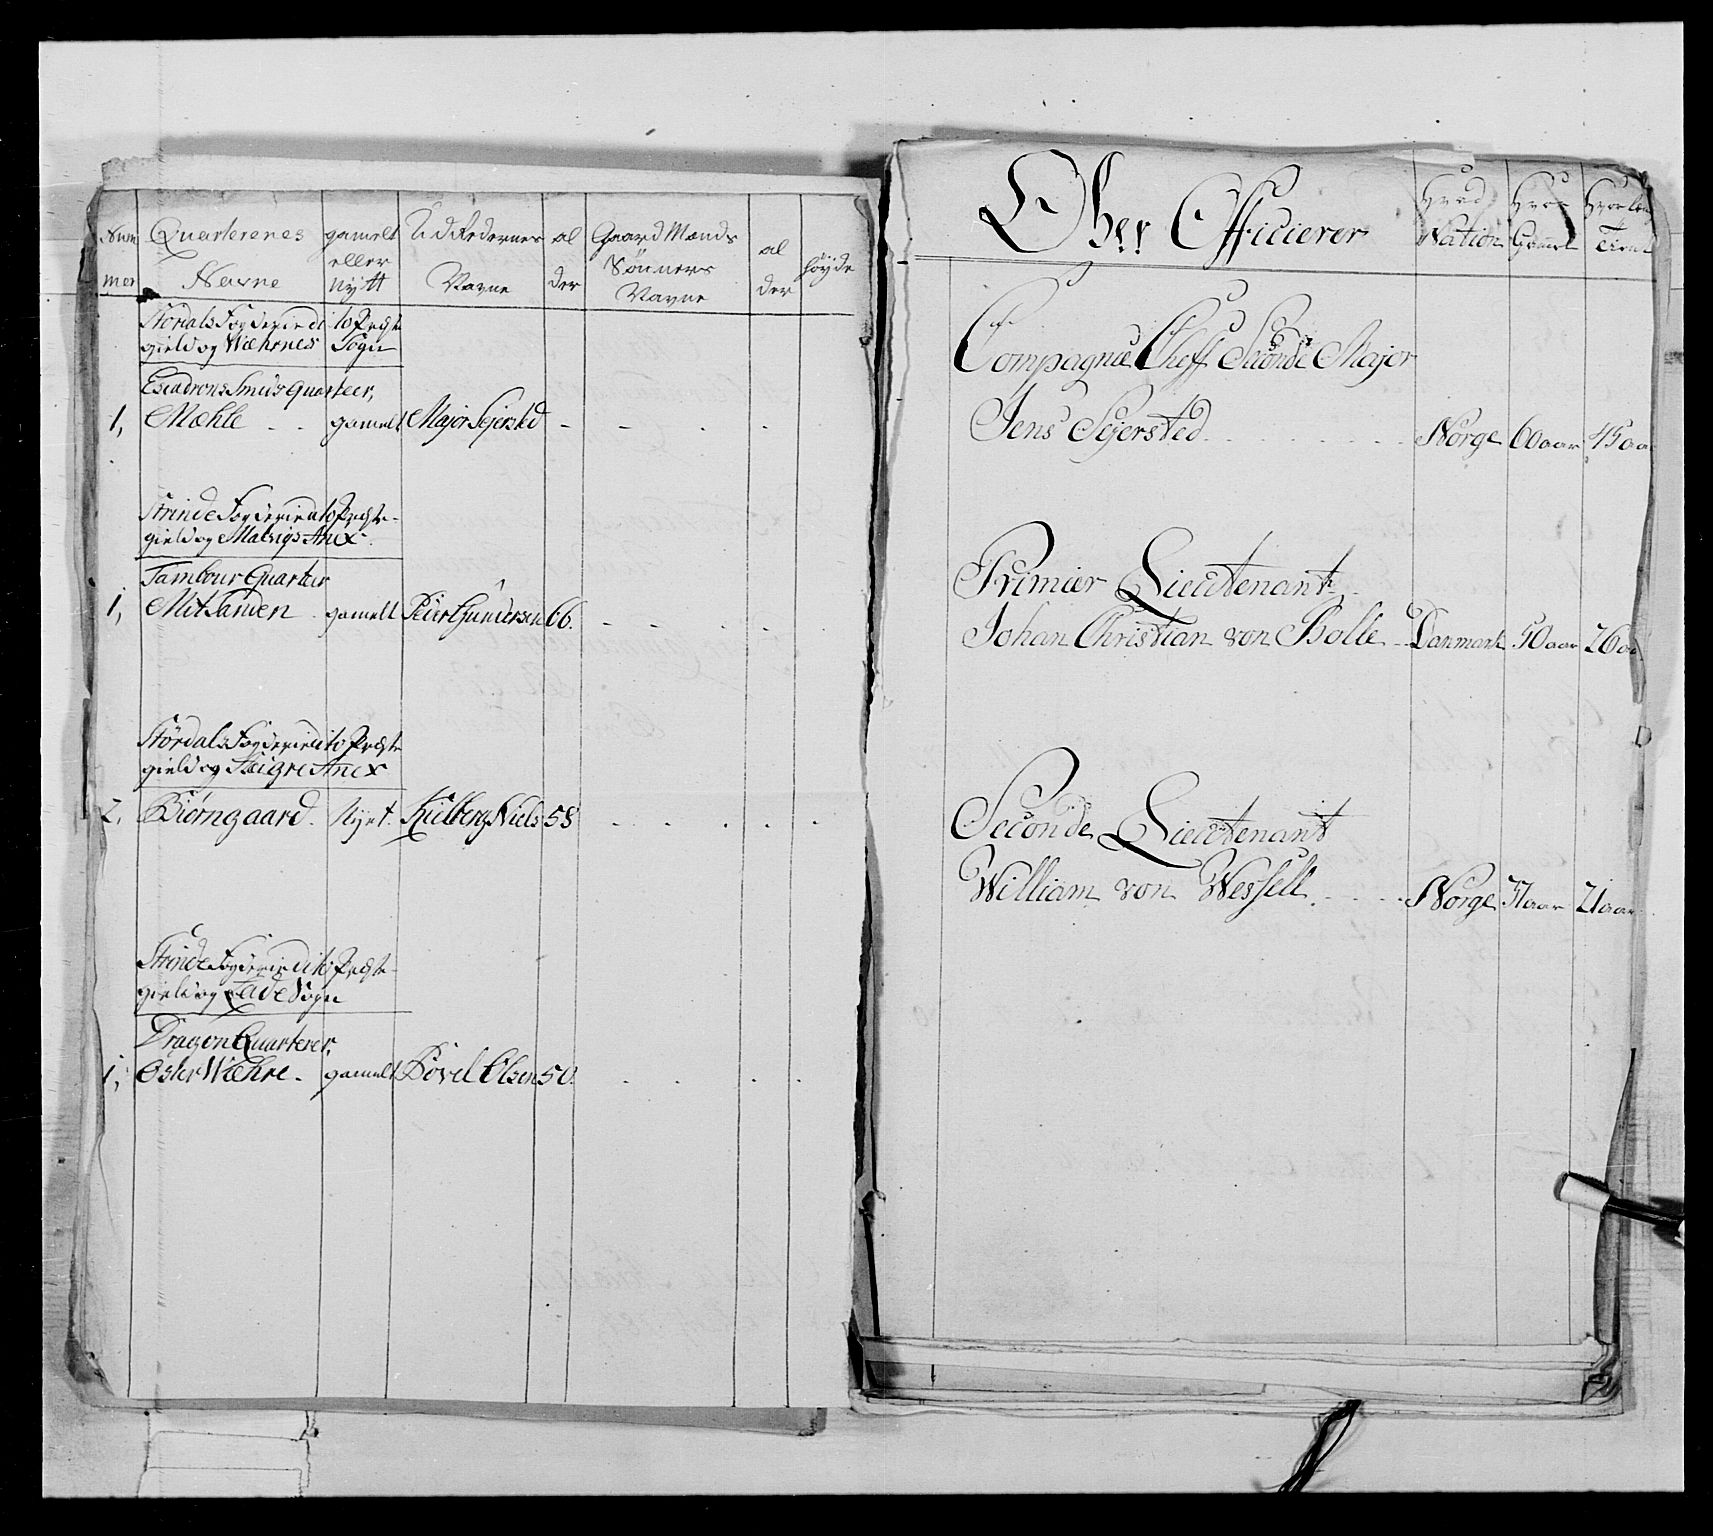 Num
mer
Quarterenes
Navne
gamelt
eller
nytt
Udrederners
Navne
al
der
Gaard Mænds
Sönners
Navne
al
der
höyde
Stördals Fogderie dito Præste
gield og Wæhrnes Sogn
Escadrons Quarteer,
1, Mæhle - - gamelt Major Sejersted - - . . .
Strinde Fogderie dito Præste-
gield og Anex
Tambour Quarteer
1, Mitsanden . gamelt Peder Gundersen 66. - - . . .
Stördals Fogderie dito Præste
gield og Skigre Anex
2, Biörngaard. Nyt. Kielberg Niels 58 . . . . .
Strinde Fogderie dito Præste-
gield og Lade Sogn
Dragon Quarterer,
1, Öster Wæhre. gamelt Olsen 50. . . . .
Ober Officierer
Hvad
Nation
Hvor
Gamel
Hvorlæng
Tient
Compagnie Cheff Seconde Major
Jens Sejersted. . . . . Norge 60 aar 45 aa
Primier Lieutenant
Johan Christian von Bolle - Danmark 50 aar 26 aa
Seconde Lieutenant
William von Wessell. - - - Norge 37 aar 21 aar